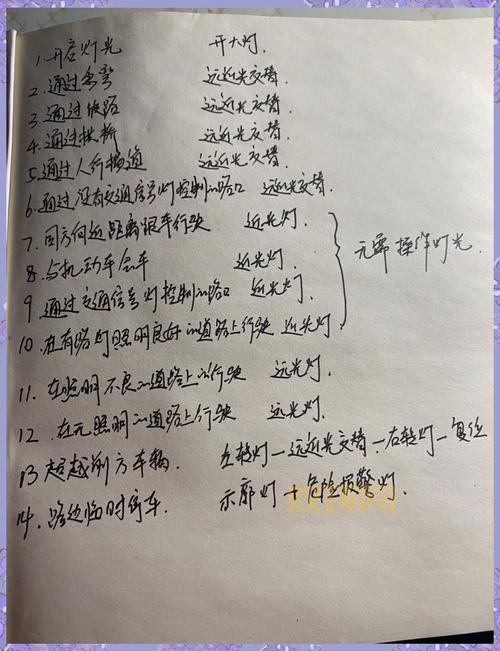 1. 开启灯光 开大灯.
2. 通过急弯 远近光交替.
3 通过坡路 远近光交替.
4. 通过拱桥 远近光交替.
5. 通过人行横道 远近光交替.
6. 通过没有交通信号灯控制的路口 远近光交替.
7. 同方向近距离跟车行驶 近光灯.
8. 与机动车会车 近光灯.
9. 通过交通信号灯控制的路口 近光灯.
无需操作灯光.
10. 在有路灯照明良好的道路上行驶 近光灯
11. 在照明不良的道路上行驶 远光灯.
12. 在无照明的道路上行驶 远光灯.
13 超越前方车辆. 左转灯—远近光交替—右转灯—复位
14. 路边临时停车. 示廓灯+危险报警灯.